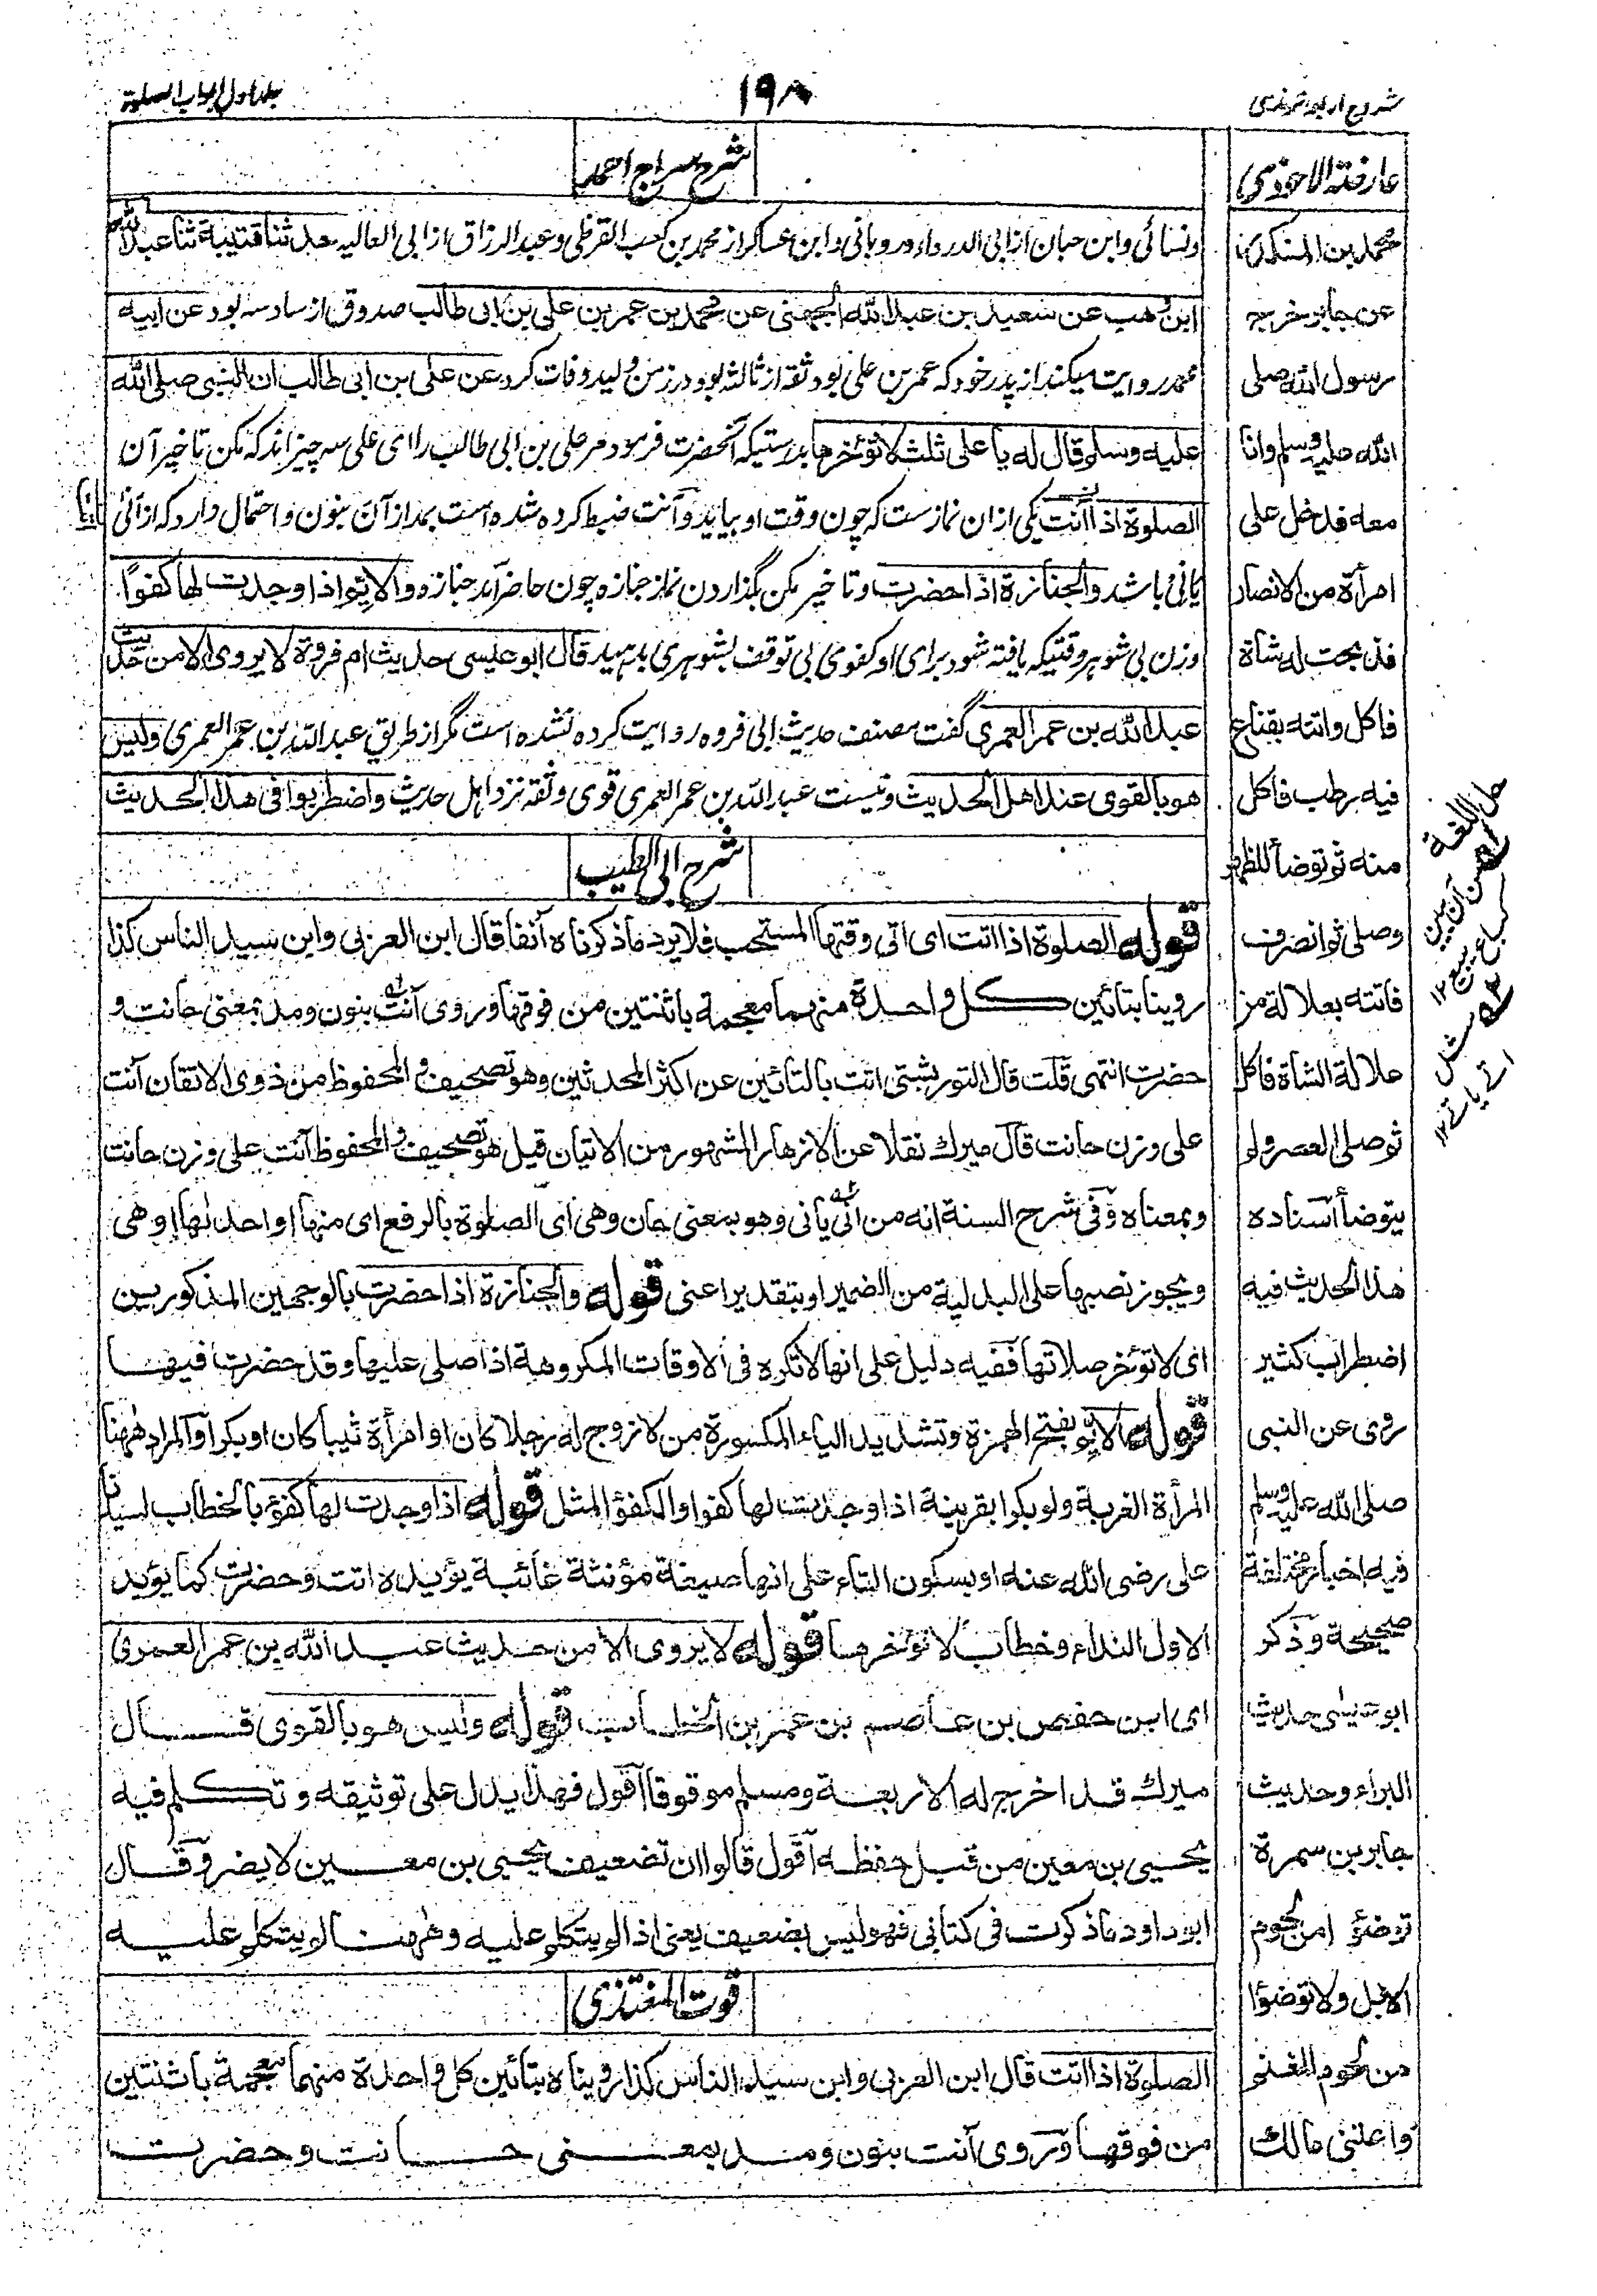 شروح اربعه ترمذی
۱۹۸
جلد اول ابواب الصلوة
عارضة الاحوذی
محمد بن المنكدر
عن جابر خرج
رسول الله صلى
الله عليه وسلم وانا
معه فدخل على
امرأة من الانصار
فذبحت له شاة
فاكل واتته بقناع
فيه رطب فاكل
منه ثم توضأ للظهر
وصلى ثم انصرف
فاتته بعلالة من
علالة الشاة فاكل
ثم صلى العصر ولم
يتوضأ اسناده
هذا الحديث فيه
اضطراب كثير
روى عن النبى
صلى الله عليه وسلم
فيه اخبار مختلفة
صحيحة وذكر
ابو عيسى حديث
البراء وحديث
جابر بن سمرة
توضؤ امن لحوم
الابل ولا توضؤا
من لحوم الغنم
مالك
شرح سراج احمد
ونسائی وابن حبان از ابی الدرداء ورویانی وابن عساکر از محمد بن کعب القرظی وعبد الرزاق از ابی العالیه حدثنا قتيبة ثنا عبد الله
ابن وهب عن سعيد بن عبد الله الجهنى عن محمد بن عمر بن على بن ابى طالب صدوق از سادسه بود عن ابيه
محمد روایت میکند از پدر خود که عمر بن علی بود ثقه از ثالثه بود در زمن ولید وفات کرد عن على بن ابى طالب ان النبى صلى الله
عليه وسلم قال له يا على ثلث لا تؤخرها بدرستیکه آنحضرت فرمود مر علی بن ابی طالب را ای علی سه چیز اند که مکن تاخیر آن
الصلوة اذا آنت یکی ازان نماز ست که چون وقت او بیاید وآنت ضبط کرده شده است بمد از آن بنون واحتمال دارد که از آنی
یانی باشد والجنازة اذا حضرت وتاخیر مکن بگذاردن نماز جنازه چون حاضر آید جنازه والايم اذا وجدت لها كفوًا
وزن بی شوهر وقتیکه یافته شود برای او کفوی بی توقف بشوهری بدهید قال ابو عيسى حديث ام فروة لا يروى الا من حديث
عبد الله بن عمر العمرى گفت مصنف حدیث ابی فروه روایت کرده نشده است مگر از طریق عبد الله بن عمر العمری وليس
هو بالقوى عند اهل الحديث ونیست عبد الله بن عمر العمری قوی وثقه نزد اهل حدیث واضطربوا فى هذا الحديث
شرح ابی الطیب
قوله الصلوة اذا اتت اى اتى وقتها المستحب فلا يرد ماذكرناه آنفا قال ابن العربى وابن سيد الناس كذا
روينا بتائين كل واحدة منهما معجمة باثنتين من فوقها وروى آنت بنون ومد بمعنى حانت و
حضرت انتهى قلت قال التوربشتى اتت بالتائين عن اكثر المحدثين وهو تصحيف والمحفوظ من ذوى الاتقان آنت
على وزن حانت قال ميرك نقلا عن الازهار المشهور من الاتيان قيل هو تصحيف والمحفوظ آنت على وزن حانت
وبمعناه وفى شرح السنة انه من انى يانى وهو بمعنى حان وهى اى الصلوة بالرفع اى منها او احدٰها او هى
ويجوز نصبها على البدلية من الضمير او بتقدير اعنى قوله والجنازة اذا حضرت بالوجهين المذكورين
اى لا تؤخر صلاتها ففيه دليل على انها لا تكره فى الاوقات المكروهة اذا صلى عليها وقد حضرت فيها
قوله الايم بفتح الهمزة وتشديد الياء المكسورة من لا زوج له رجلا كان او امرأة ثيبا كان او بكرا والمراد ههنا
المرأة الغربة ولو بكرا بقرينة اذا وجدت لها كفوا والكفؤ المثل قوله اذا وجدت لها كفؤ بالخطاب لسيدنا
على رضى الله عنه او بسكون التاء على انها صيغة مؤنثة غائبة يؤيده اتت وحضرت كما يؤيد
الاول النداء وخطاب لا تؤخرها قوله لا يروى الا من حديث عبد الله بن عمر العمرى
اى ابن حفص بن عاصم بن عمر بن الخطاب قوله وليس هو بالقوى قال
ميرك قد اخرج له الاربعة ومسلم موقوفا اقول فهذا يدل على توثيقه وتكلم فيه
يحيى بن معين من قبل حفظه اقول قالوا ان تضعيف يحيى بن معين لا يضر وقال
ابو داود ماذكرت فى كتابى فهو ليس بضعيف يعنى اذا لم يتكلم عليه وههنا لم يتكلم عليه
قوت المغتذی
الصلوة اذا اتت قال ابن العربى وابن سيد الناس كذا رويناه بتائين كل واحدة منهما معجمة باثنتين
من فوقها وروى آنت بنون ومد بمعنى حانت وحضرت
حل اللغة